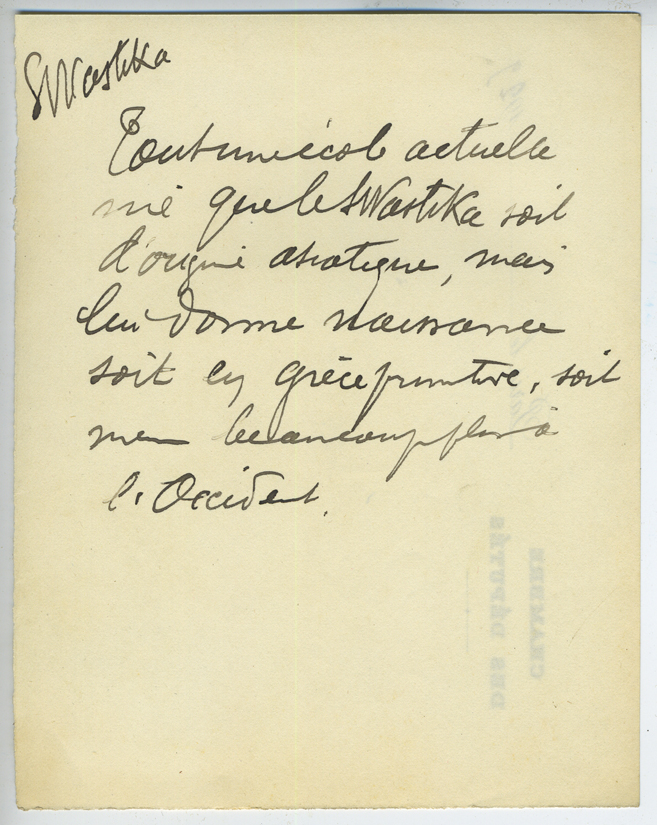 SWastika
Toute une école actuelle
nie que le SWastika soit
d'origine asiatique, mais
lui donne naissance
soit en Grèce primitive, soit
même beaucoup plus à
l'Occident.
CHAMBRE
DES DÉPUTÉS